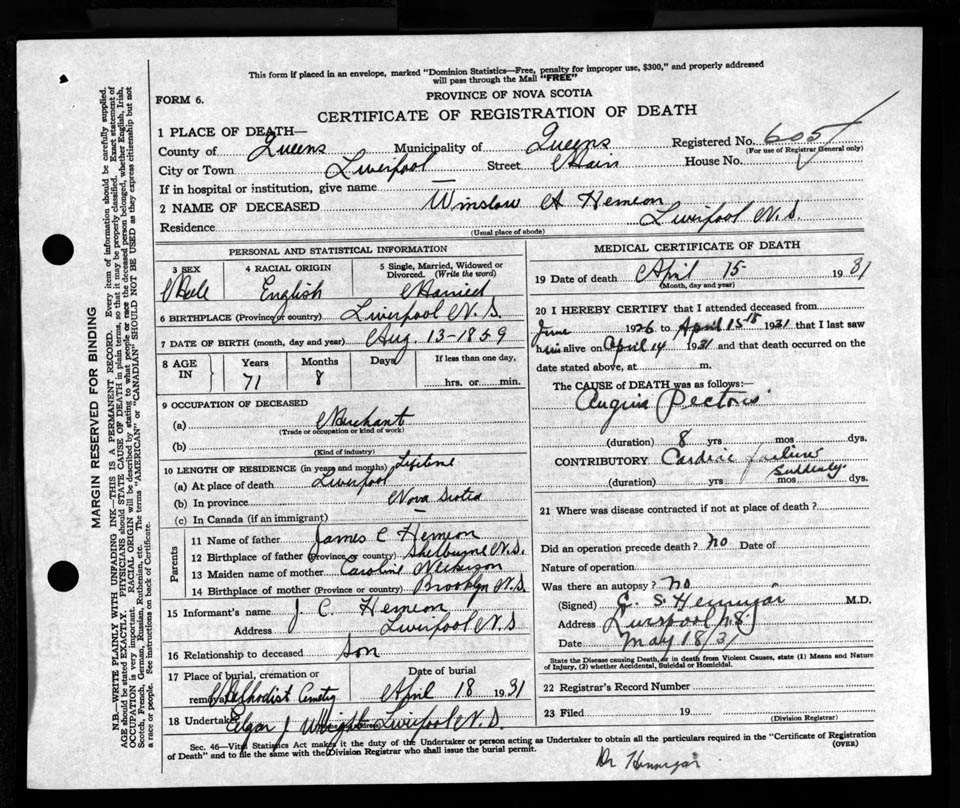 This form if placed in an envelope, marked "Dominion Statistics—Free, penalty for improper use, $300," and properly addressed
will pass through the Mail "FREE"
FORM 6.
PROVINCE OF NOVA SCOTIA
CERTIFICATE OF REGISTRATION OF DEATH
1 PLACE OF DEATH—
County of Queens Municipality of Queens Registered No. 605
(For use of Registrar General only)
City or Town Liverpool Street Main House No.
If in hospital or institution, give name —
2 NAME OF DECEASED Winslow A Hemeon
Residence Liverpool N.S.
(Usual place of abode)
PERSONAL AND STATISTICAL INFORMATION
3 SEX 4 RACIAL ORIGIN 5 Single, Married, Widowed or Divorced. (Write the word)
Male English Married
6 BIRTHPLACE (Province or country) Liverpool N.S.
7 DATE OF BIRTH (month, day and year) Aug 13-1859
8 AGE IN Years Months Days If less than one day,
71 8 hrs. or min.
9 OCCUPATION OF DECEASED
(a) Merchant
(Trade or occupation or kind of work)
(b)
(Kind of industry)
10 LENGTH OF RESIDENCE (in years and months) Lifetime
(a) At place of death Liverpool
(b) In province Nova Scotia
(c) In Canada (if an immigrant) —
Parents
11 Name of father James C Hemeon
12 Birthplace of father (Province or country) Shelburne N.S.
13 Maiden name of mother Caroline
14 Birthplace of mother (Province or country) Brooklyn N.S
15 Informant's name J C Hemeon
Address Liverpool N.S
16 Relationship to deceased Son
17 Place of burial, cremation or removal Date of burial
Methodist Cemetry April 18 1931
18 Undertaker Elgar J Wright Address Liverpool N.S
MEDICAL CERTIFICATE OF DEATH
19 Date of death April 15 1931
(Month, day and year)
20 I HEREBY CERTIFY that I attended deceased from
June 1926 to April 15th 1931 that I last saw
him alive on April 14 1931 and that death occurred on the
date stated above, at m.
The CAUSE OF DEATH was as follows:—
Angina Pectoris
(duration) 8 yrs mos dys.
CONTRIBUTORY Cardiac failure
Suddenly
(duration) yrs mos dys.
21 Where was disease contracted if not at place of death?
Did an operation precede death? No Date of
Nature of operation
Was there an autopsy? No
(Signed) S. Hennigar M.D.
Address Liverpool N.S.
Date May 18/31
State the Disease causing Death, or in death from Violent Causes, state (1) Means and Nature
of Injury, (2) whether Accidental, Suicidal or Homicidal.
22 Registrar's Record Number
23 Filed 19
(Division Registrar)
Sec. 46—Vital Statistics Act makes it the duty of the Undertaker or person acting as Undertaker to obtain all the particulars required in the "Certificate of Registration
of Death" and to file the same with the Division Registrar who shall issue the burial permit.
(OVER)
Dr Hennigar
MARGIN RESERVED FOR BINDING
N.B.—WRITE PLAINLY WITH UNFADING INK—THIS IS A PERMANENT RECORD. Every item of information should be carefully supplied.
AGE should be stated EXACTLY. PHYSICIANS should STATE CAUSE OF DEATH in plain terms, so that it may be properly classified. Exact statement of
OCCUPATION is very important. RACIAL ORIGIN will be described by stating to what people or race the deceased person belonged, whether English, Irish,
Scotch, French, German, Russian, Ruthenian, etc. The terms "AMERICAN" or "CANADIAN" SHOULD NOT BE USED as they express citizenship but not
a race or people. See instructions on back of Certificate.